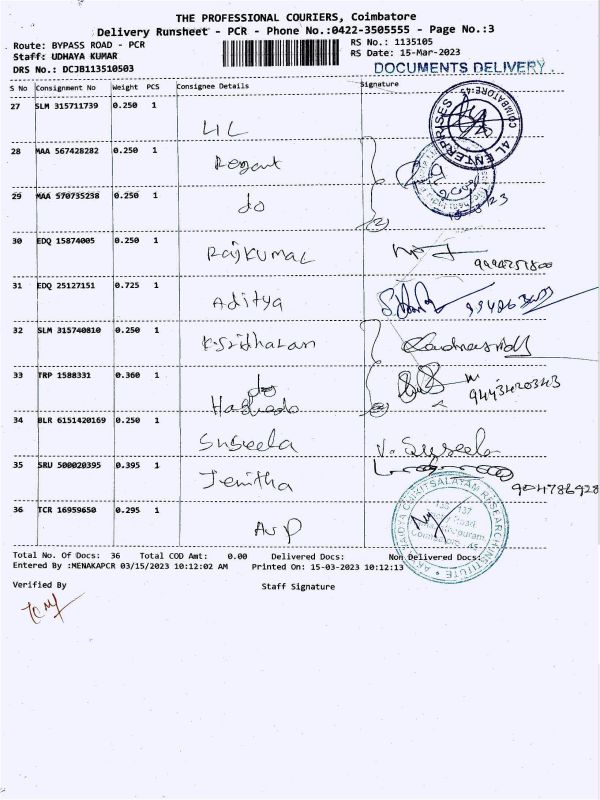 THE PROFESSIONAL COURIERS, Coimbatore
Delivery Runsheet - PCR - Phone No.:0422-3505555 - Page No.:3
Route: BYPASS ROAD - PCR
RS No.: 1135105
Staff: UDHAYA KUMAR
RS Date: 15-Mar-2023
DRS No.: DCJB113510503
DOCUMENTS DELIVERY.
S No Consignment No Weight PCS Consignee Details Signature
27 SLM 315711739 0.250 1
28 MAA 567428282 0.250 1 Regent
29 MAA 570735238 0.250 1 do
30 EDQ 15874005 0.250 1 Rajkumar
31 EDQ 25127151 0.725 1 Aditya
32 SLM 315740810 0.250 1 K.Sridharan
33 TRP 1588331 0.360 1 do
9443420343
34 BLR 6151420169 0.250 1 Suseela V. Suseela
35 SRU 500020395 0.395 1 Jemitha
36 TCR 16959650 0.295 1 AVP
4L ENTERPRISES
COIMBATORE-45
Total No. Of Docs: 36 Total COD Amt: 0.00 Delivered Docs: Non Delivered Docs:
Entered By :MENAKAPCR 03/15/2023 10:12:02 AM Printed On: 15-03-2023 10:12:13
Verified By Staff Signature